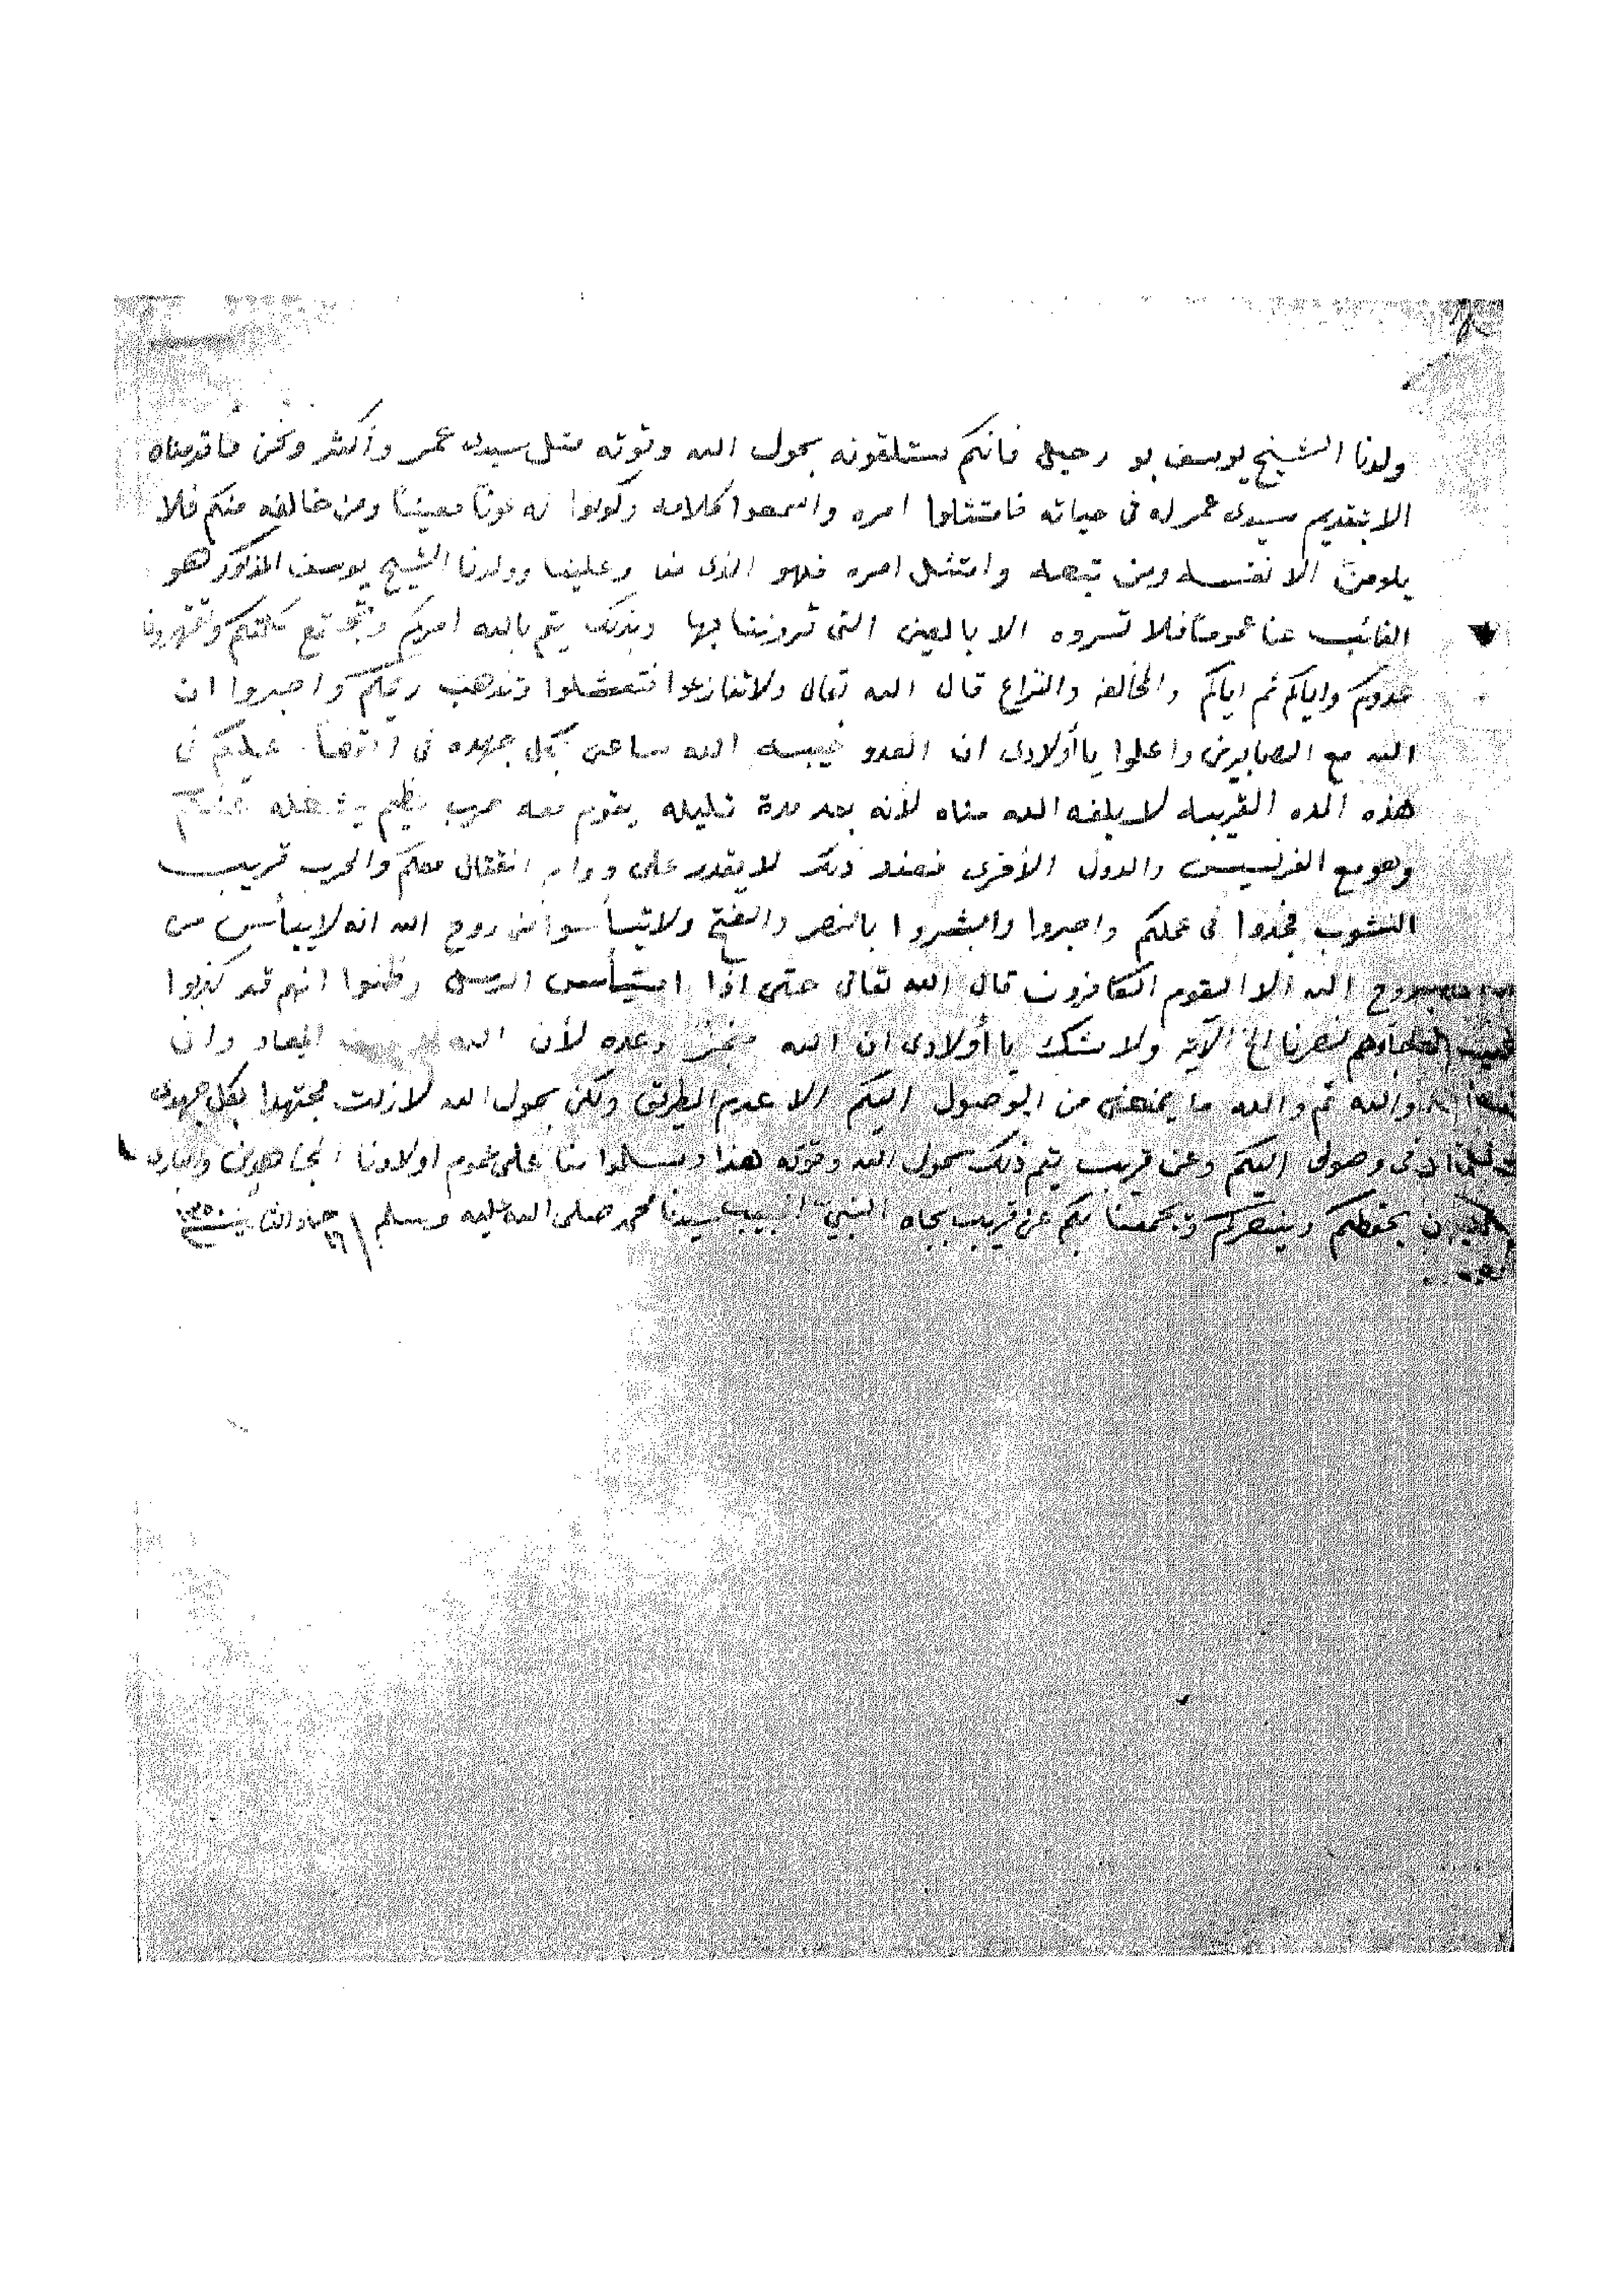 ولدنا الشيخ يوسف بو رحيل فانكم ستلقونه بحول الله وقوته مثل سيدى عمر وأكثر ونحن ما قدمناه
الا بتقديم سيدى عمر له فى حياته فامتثلوا امره واسمعوا كلامه وكونوا له عوناً معيناً ومن خالفه منكم فلا
يلومنّ الا نفسه ومن تبعه وامتثل امره فهو الذى منا وعلينا وولدنا الشيخ يوسف المذكور هو
النائب عنا عموماً فلا تروه الا بالعين التى تروننا بها وبذلك يتم بالله امركم وتجتمع كلمتكم وتقهروا
عدوكم واياكم ثم اياكم والمخالفه والنزاع قال الله تعالى ولا تنازعوا فتفشلوا وتذهب ريحكم واصبروا ان
الله مع الصابرين واعلموا يا أولادى ان العدو خيبه الله ساعى بكل جهده فى عملكم فى
هذه المده القريبه لا بلغه الله مناه لأنه بعد مدة قليله يقوم معه حرب عظيم يشغله عنكم
وهو مع الفرنسيس والدول الأخرى فعند ذلك لا يقدر على دوام القتال معكم والحرب قريب
النشوب فجدوا فى عملكم واصبروا وابشروا بالنصر والفتح ولا تيأسوا من روح الله انه لا ييأس من
روح الله الا القوم الكافرون قال الله تعالى حتى اذا استيأس الرسل وظنوا انهم قد كذبوا
جاءهم نصرنا الخ الآية ولا شك يا أولادى ان الله منجز وعده لأن الله الميعاد وان
والله ثم والله ما يمنعنى من الوصول اليكم الا عدم الطريق ولكن بحول الله لا زلت مجتهدا بكل جهدى
فى وصولى اليكم وعن قريب يتم ذلك بحول الله وقوته هذا وسلموا منا على عموم اولادنا المجاهدين
يحفظكم وينصركم ويجمعنا بكم عن قريب بجاه النبى الحبيب سيدنا محمد صلى الله عليه وسلم